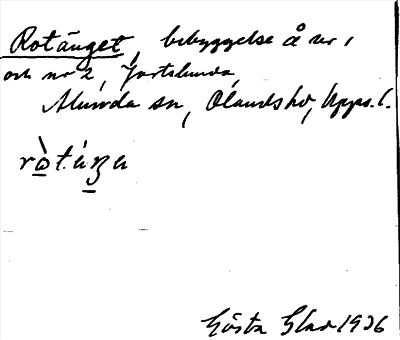 Rotänget, bebyggelse å nr 1
och nr 2, Jortslunda,
Alunda sn, Olandshd, Upps. l.
Gösta Glad 1926